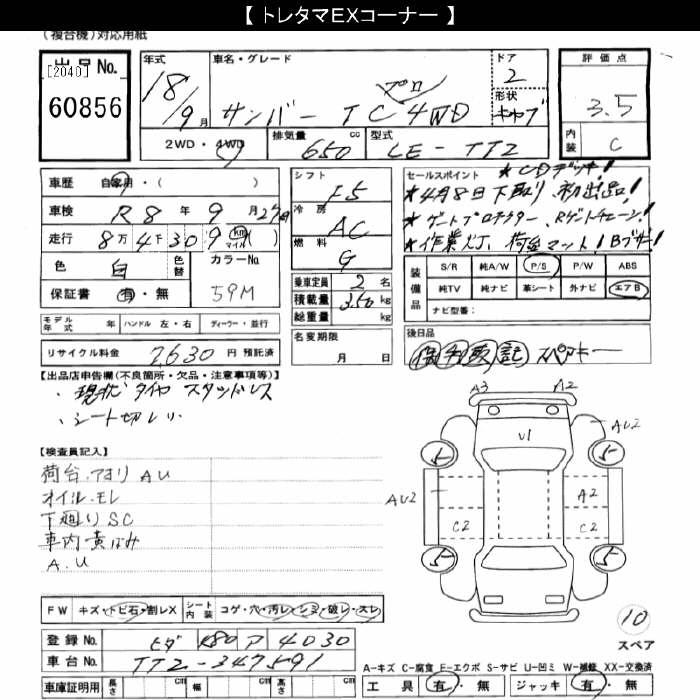 【 トレタマEXコーナー 】
(複合機)対応用紙
出品No. [2040] 60856
年式 18/9月
車名・グレード サンバー TC プロ 4WD
ドア 2
形状 キャブ
評価点 3.5
内装 C
2WD・4WD
排気量 650 cc
型式 LE-TT2
車歴 自家用・( )
車検 R8年 9月 27日
走行 8万 4千 309 km マイル ( )
色 白 色替
カラーNo. 59M
保証書 有・無
シフト F5
冷房 AC
燃料 G
乗車定員 2名
積載量 350 kg
総重量 kg
セールスポイント ★CDデッキ!
★4月8日下取り 初出品!
★ゲートプロテクター、Rゲートチェーン!
★作業灯、荷台マット!Bブザー!
装備品
S/R 純A/W P/S P/W ABS
純TV 純ナビ 革シート 外ナビ エアB
ナビ型番:
モデル年式 年 ハンドル 左・右 ディーラー・並行
リサイクル料金 7,630 円 預託済
名変期限 月 日
後日品
保 手 取 記 スペアキー
【出品店申告欄(不良箇所・欠品・注意事項等)】
・現状 タイヤ スタッドレス
・シート切レ
【検査員記入】
荷台.アオリ AU
オイル.モレ
下廻りSC
車内 黄ばみ
A.U
FW キズ・トビ石・割レX
シート内装 コゲ・穴・汚レ・シミ・破レ・スレ
登録No. 480 ア 4030
車台No. TT2-347591
車庫証明用 長さ 幅 高さ
A3 A2
V1
AU2
5 5
AU2 A2
C2 C2
5 5
10
スペア
A−キズ C−腐食 E−エクボ S−サビ U−凹ミ W−補修 XX−交換済
工具 有・無 ジャッキ 有・無